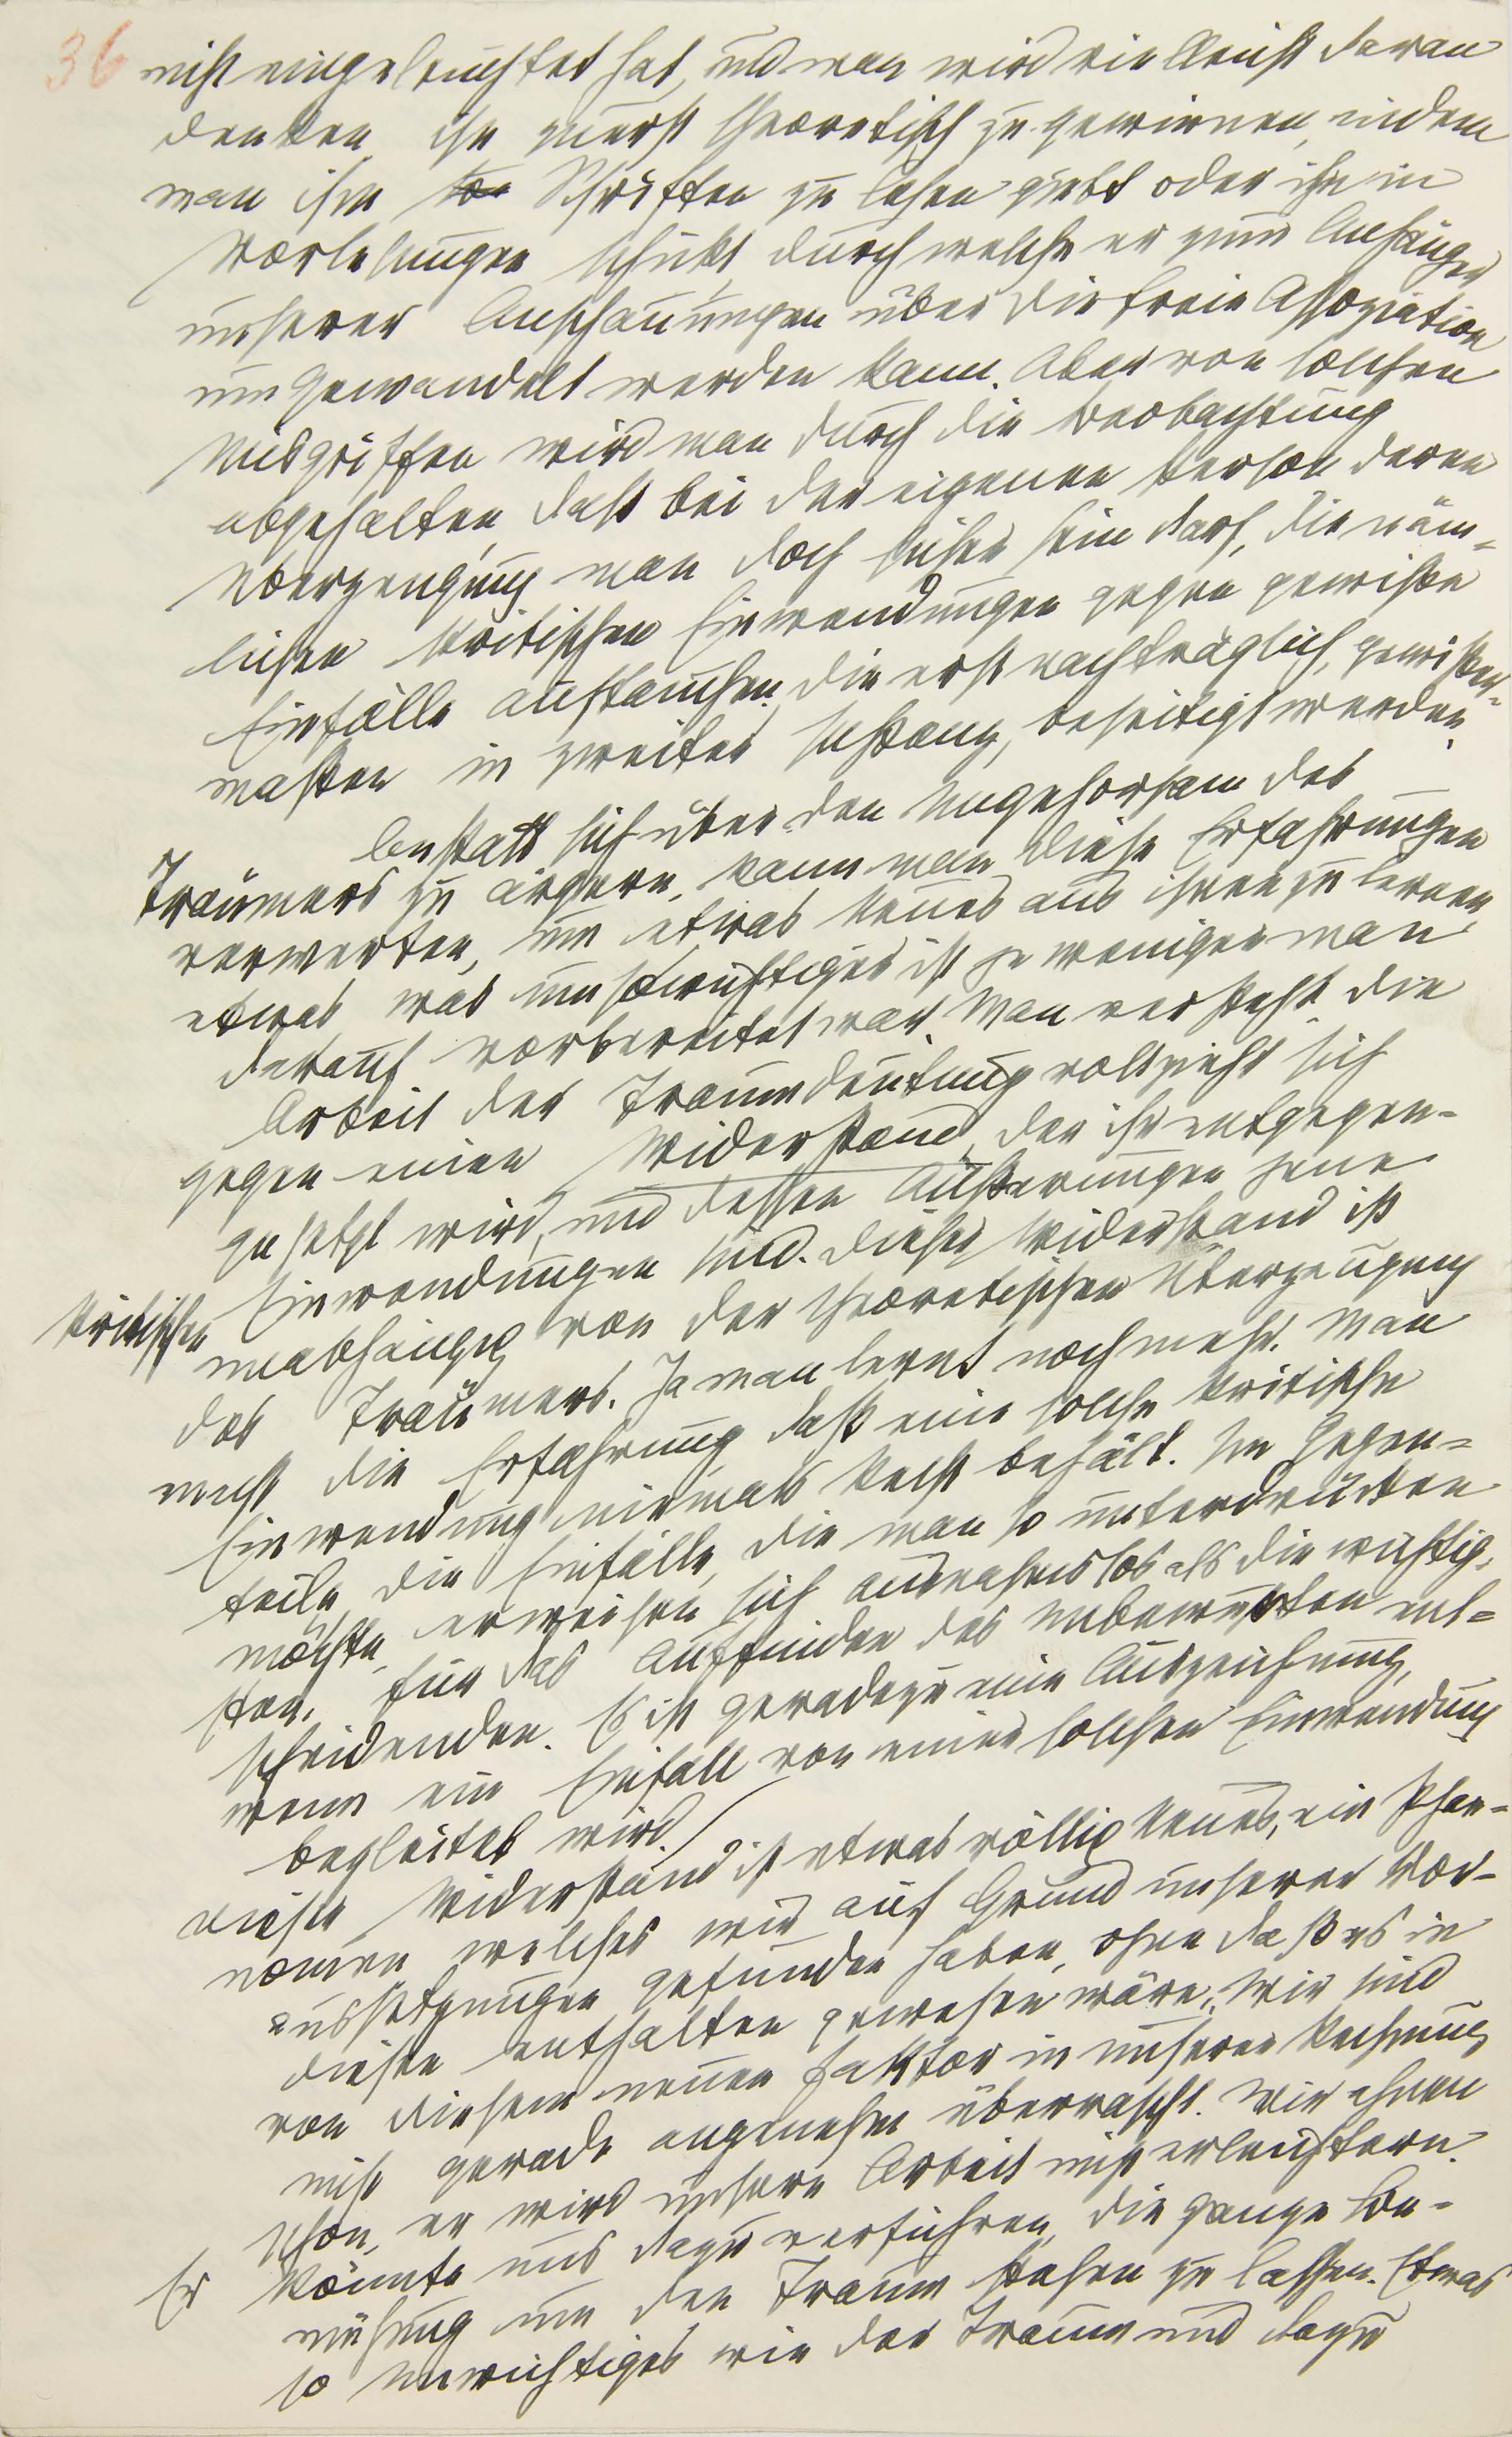 36 nicht eingeleuchtet hat, und man wird vielleicht daran
denken, ihn zuerst theoretisch zu gewinnen, indem
man ihm Schriften zu lesen giebt oder ihn in
Vorlesungen schickt, durch welche er zum Anhänger
unserer Anschauungen über die freie Assoziation
umgewandelt werden kann. Aber von solchen
Misgriffen wird man durch die Beobachtung
abgehalten, daß bei der eigenen Person, deren
Überzeugung man doch sicher sein darf, die näm-
lichen kritischen Einwendungen gegen gewisse
Einfälle auftauchen, die erst nachträglich, gewisser-
massen in zweiter Instanz, beseitigt werden.
Anstatt sich über den Ungehorsam des
Träumers zu ärgern, kann man diese Erfahrungen
verwerten, um etwas Neues aus ihnen zu lernen,
etwas was umso wichtiger ist je weniger man
darauf vorbereitet war. Man versteht, die
Arbeit der Traumdeutung vollzieht sich
gegen einen Widerstand, der ihr entgegen-
gesetzt wird, und dessen Äußerungen jene
kritischen Einwendungen sind. Dieser Widerstand ist
unabhängig von der theoretischen Überzeugung
des Träumers. Ja man lernt noch mehr. Man
macht die Erfahrung, daß eine solche kritische
Einwendung niemals Recht behält. Im Gegen-
teile, die Einfälle, die man so unterdrücken
möchte, erweisen sich ausnahmslos als die wichtig-
sten, für das Auffinden des Unbewußten ent-
scheidenden. Es ist geradezu eine Auszeichnung,
wenn ein Einfall von einer solchen Einwendung
begleitet wird./
Dieser Widerstand ist etwas völlig Neues, ein Phae-
nomen, welches wir auf Grund unserer Vor-
aussetzungen gefunden haben, ohne daß es in
diesen enthalten gewesen wäre. Wir sind
von diesem neuen Faktor in unserer Rechnung
nicht gerade angenehm überrascht. Wir ahnen
schon, er wird unsere Arbeit nicht erleichtern.
Er könnte uns dazu verführen, die ganze Be-
mühung um den Traum stehen zu lassen. Etwas
so Unwichtiges wie der Traum und dazu